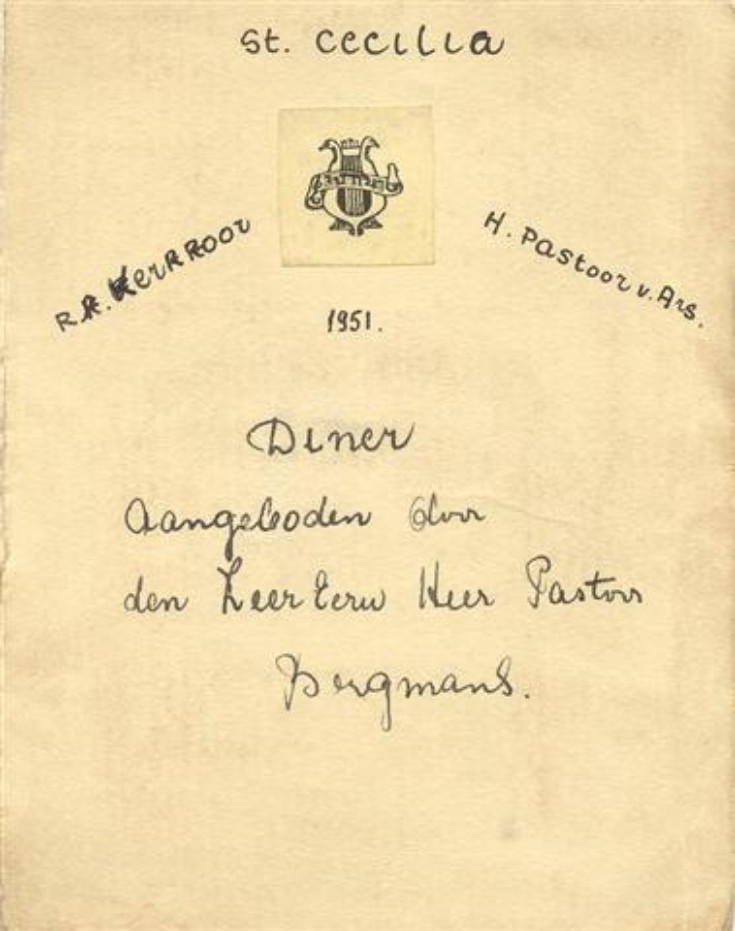 St. Cecilia
R.K. Kerkkoor
H. Pastoor v. Ars.
1951.
Diner
Aangeboden door
den ZeerEerw Heer Pastoor
Bergmans.